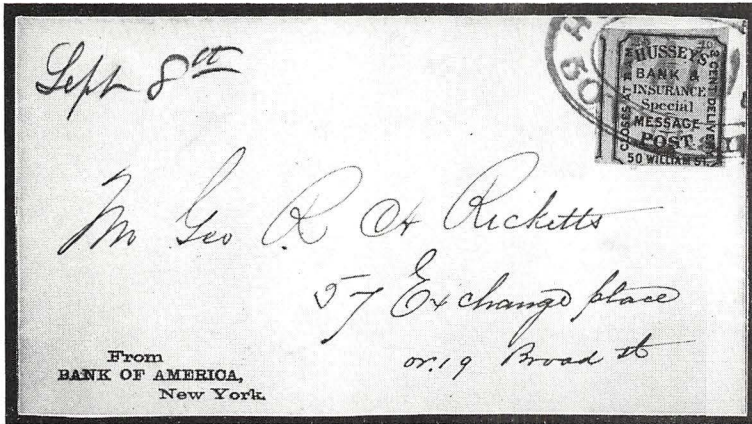 Sept 8th
HUSSEY'S
BANK &
INSURANCE
Special
MESSAGE
POST
50 WILLIAM ST.
CLOSES AT
CENT DELIVERY
50
Mr Geo R A Ricketts
57 Exchange place
or 19 Broad st
From
BANK OF AMERICA,
New York.